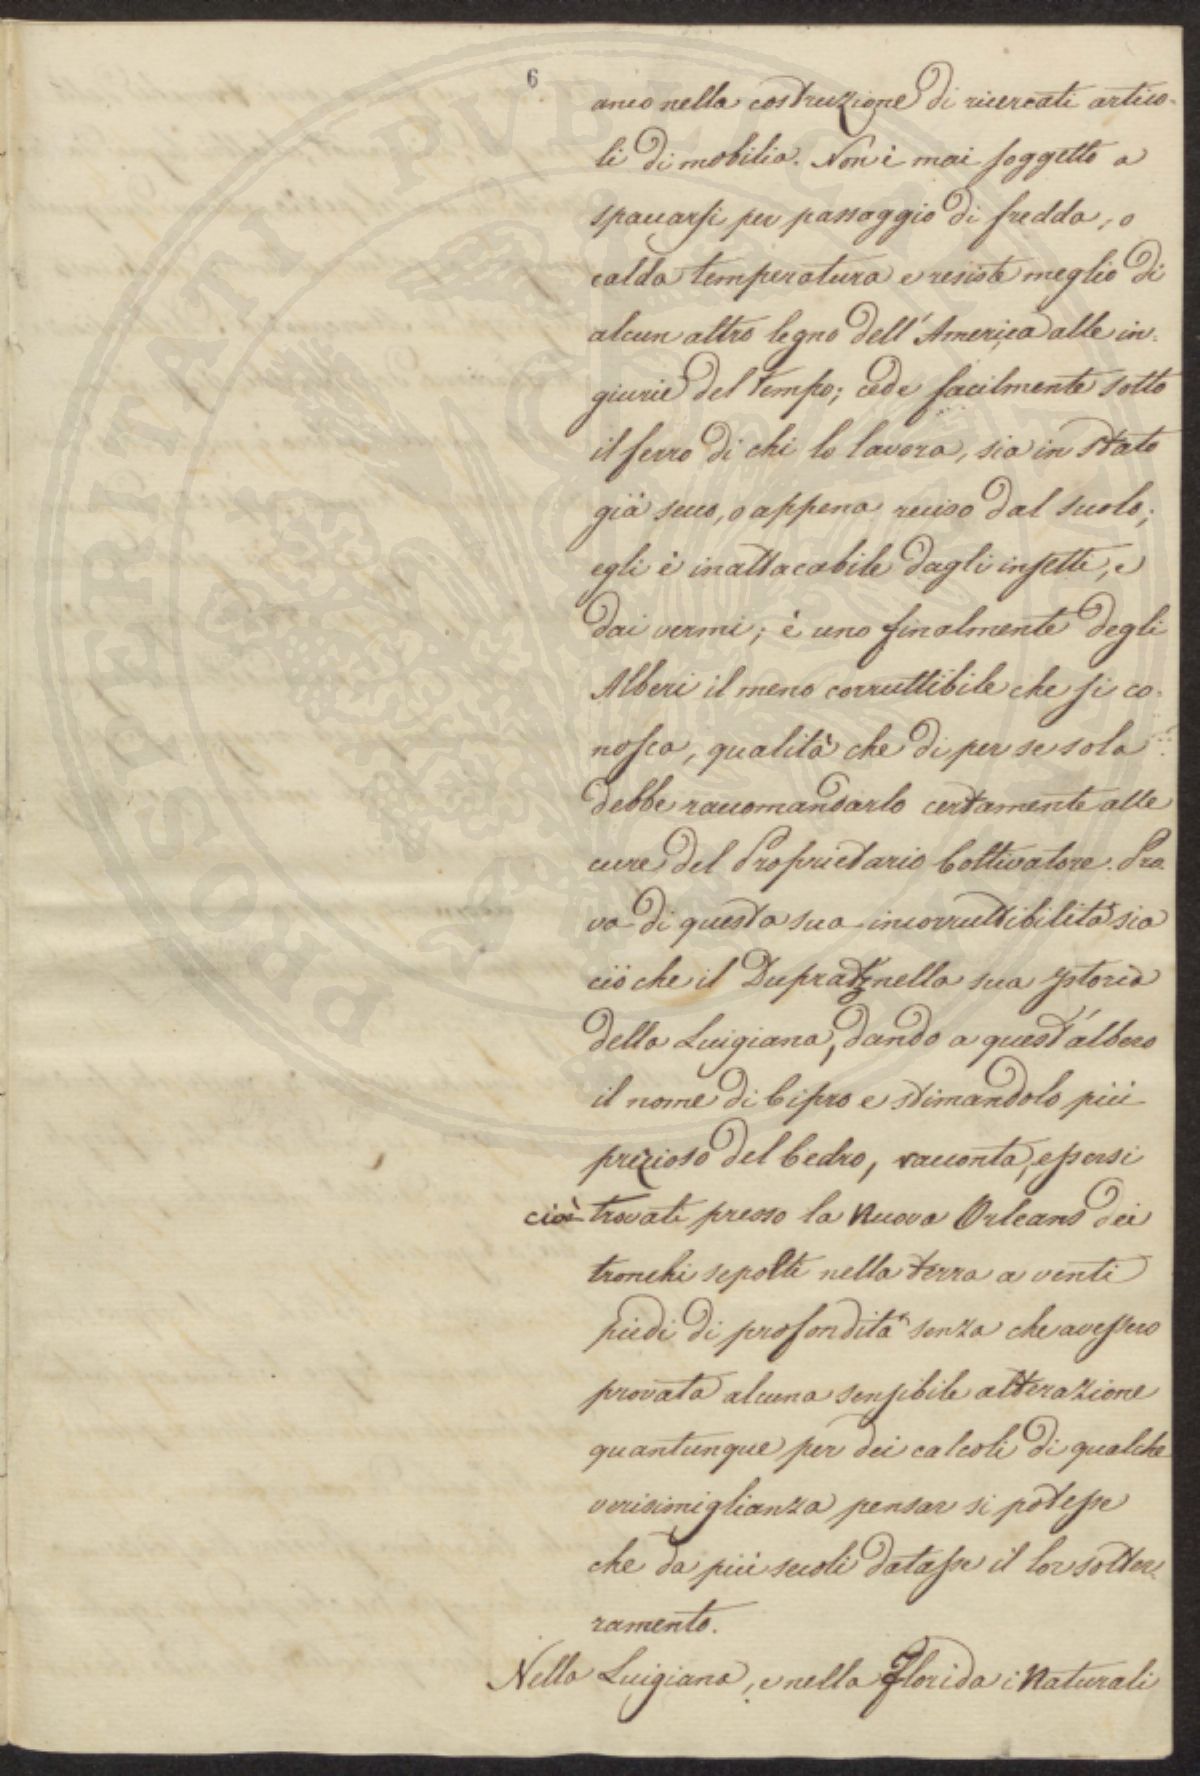 6
anco nella costruzione di ricercati artico-
li di mobilia. Non è mai soggetto a
spaccarsi per passaggio di fredda, o
calda temperatura e resiste meglio di
alcun altro legno dell'America alle in-
giurie del tempo; cede facilmente sotto
il ferro di chi lo lavora, sia in stato
già secco, o appena reciso dal suolo;
egli è inattacabile dagli insetti, e
dai vermi; è uno finalmente degli
Alberi il meno corruttibile che si co-
nosca, qualità che di per se sola
debbe raccomandarlo certamente alle
cure del Proprietario Coltivatore. Pro-
va di questa sua incorruttibilità sia
ciò che il Dupratz nella sua Istoria
della Luigiana, dando a quest'albero
il nome di Cipro e stimandolo più
prezioso del Cedro, racconta, essersi
cioè trovati presso la Nuova Orleans dei
tronchi sepolti nella terra a venti
piedi di profondità senza che avessero
provata alcuna sensibile alterazione
quantunque per dei calcoli di qualche
verisimiglianza pensar si potesse
che da più secoli datasse il lor sotter-
ramento.
Nella Luigiana, e nella Florida i Naturali
PROSPERITATI PVBLICAE